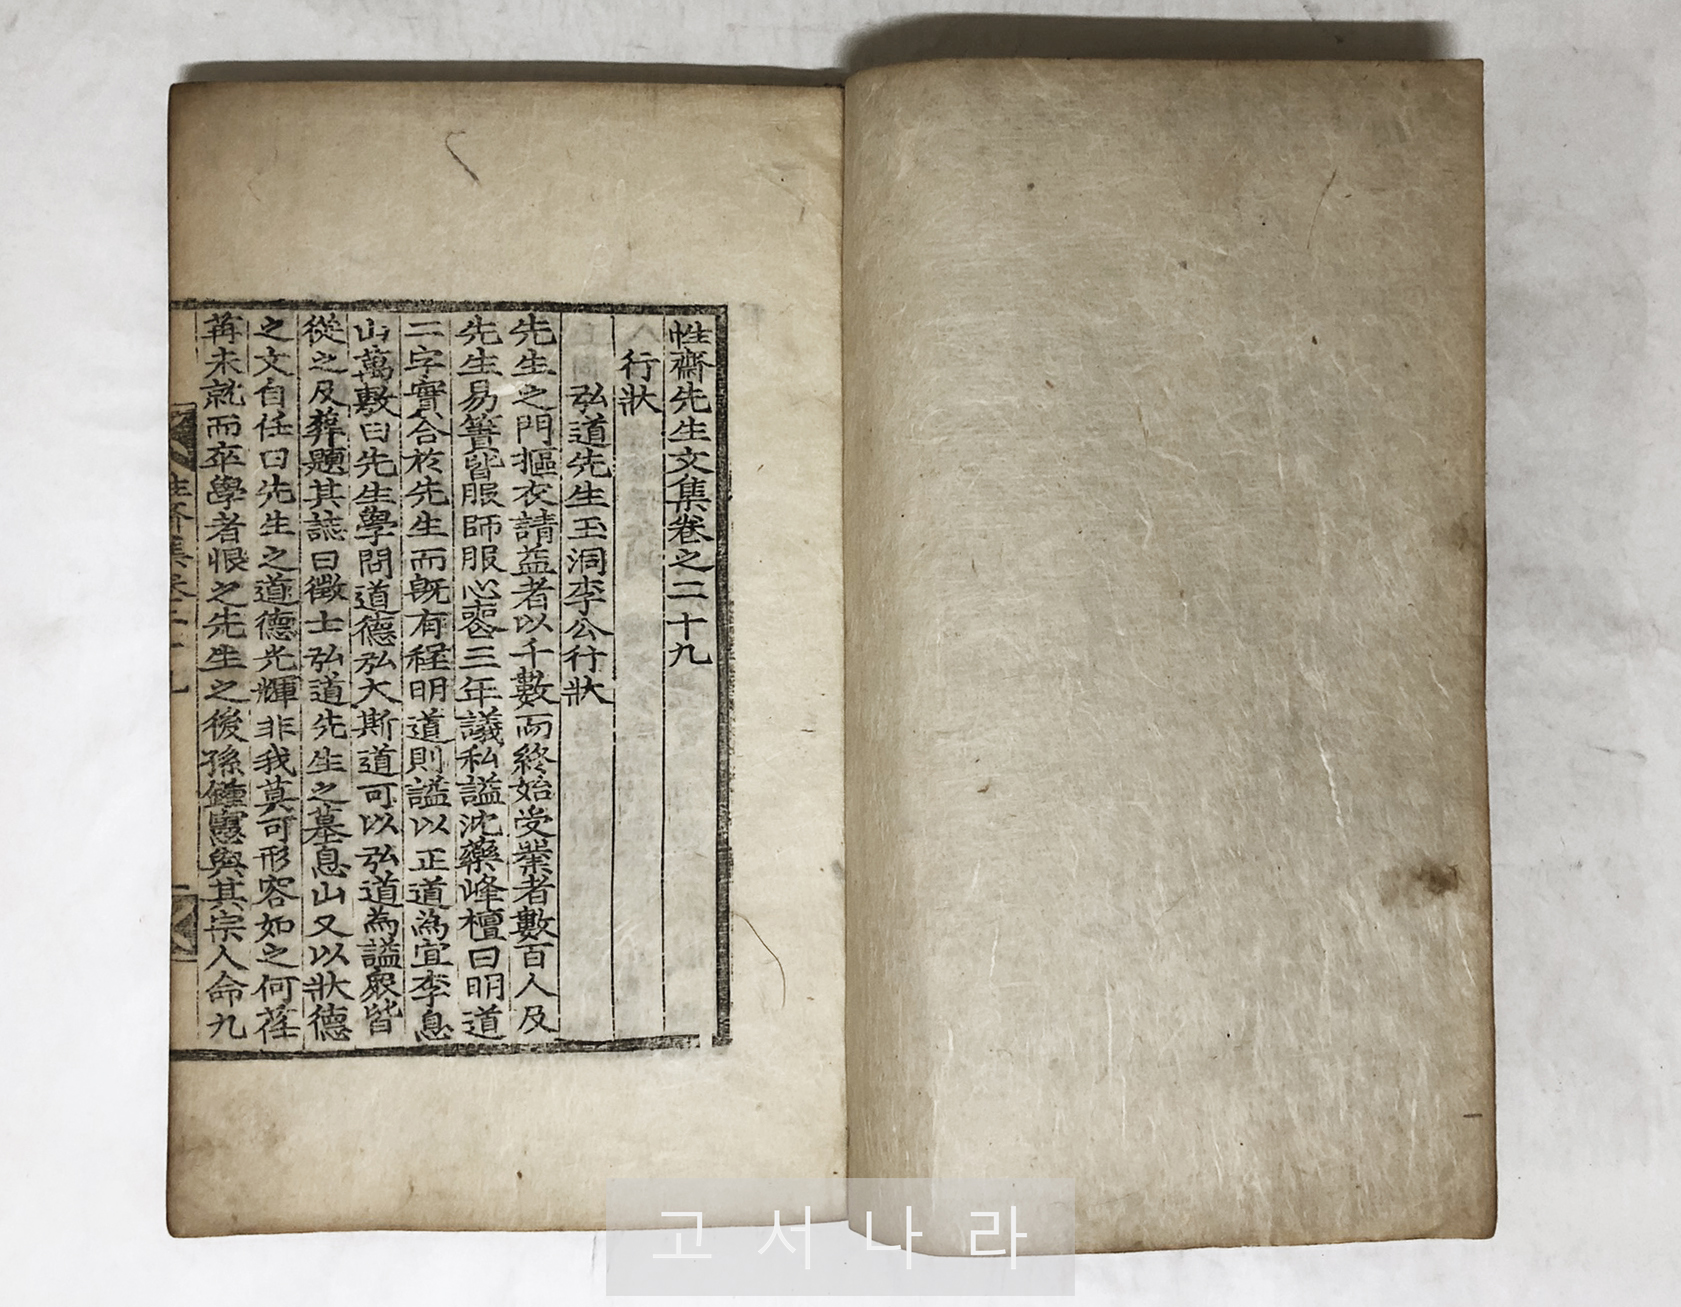 性齋先生文集卷之二十九
行狀
弘道先生玉洞李公行狀
先生之門摳衣請益者以千數而終始受業者數百人及
先生易簀皆服師服心喪三年議私謚沈藥峰檀曰明道
二字實合於先生而旣有程明道則謚以正道爲宜李息
山萬敷曰先生學問道德弘大斯道可以弘道爲謚衆皆
從之及葬題其誌曰徵士弘道先生之墓息山又以狀德
之文自任曰先生之道德光輝非我莫可形容如之何荏
苒未就而卒學者恨之先生之後孫鍾憲與其宗人命九
性齋集卷二十九
고서나라